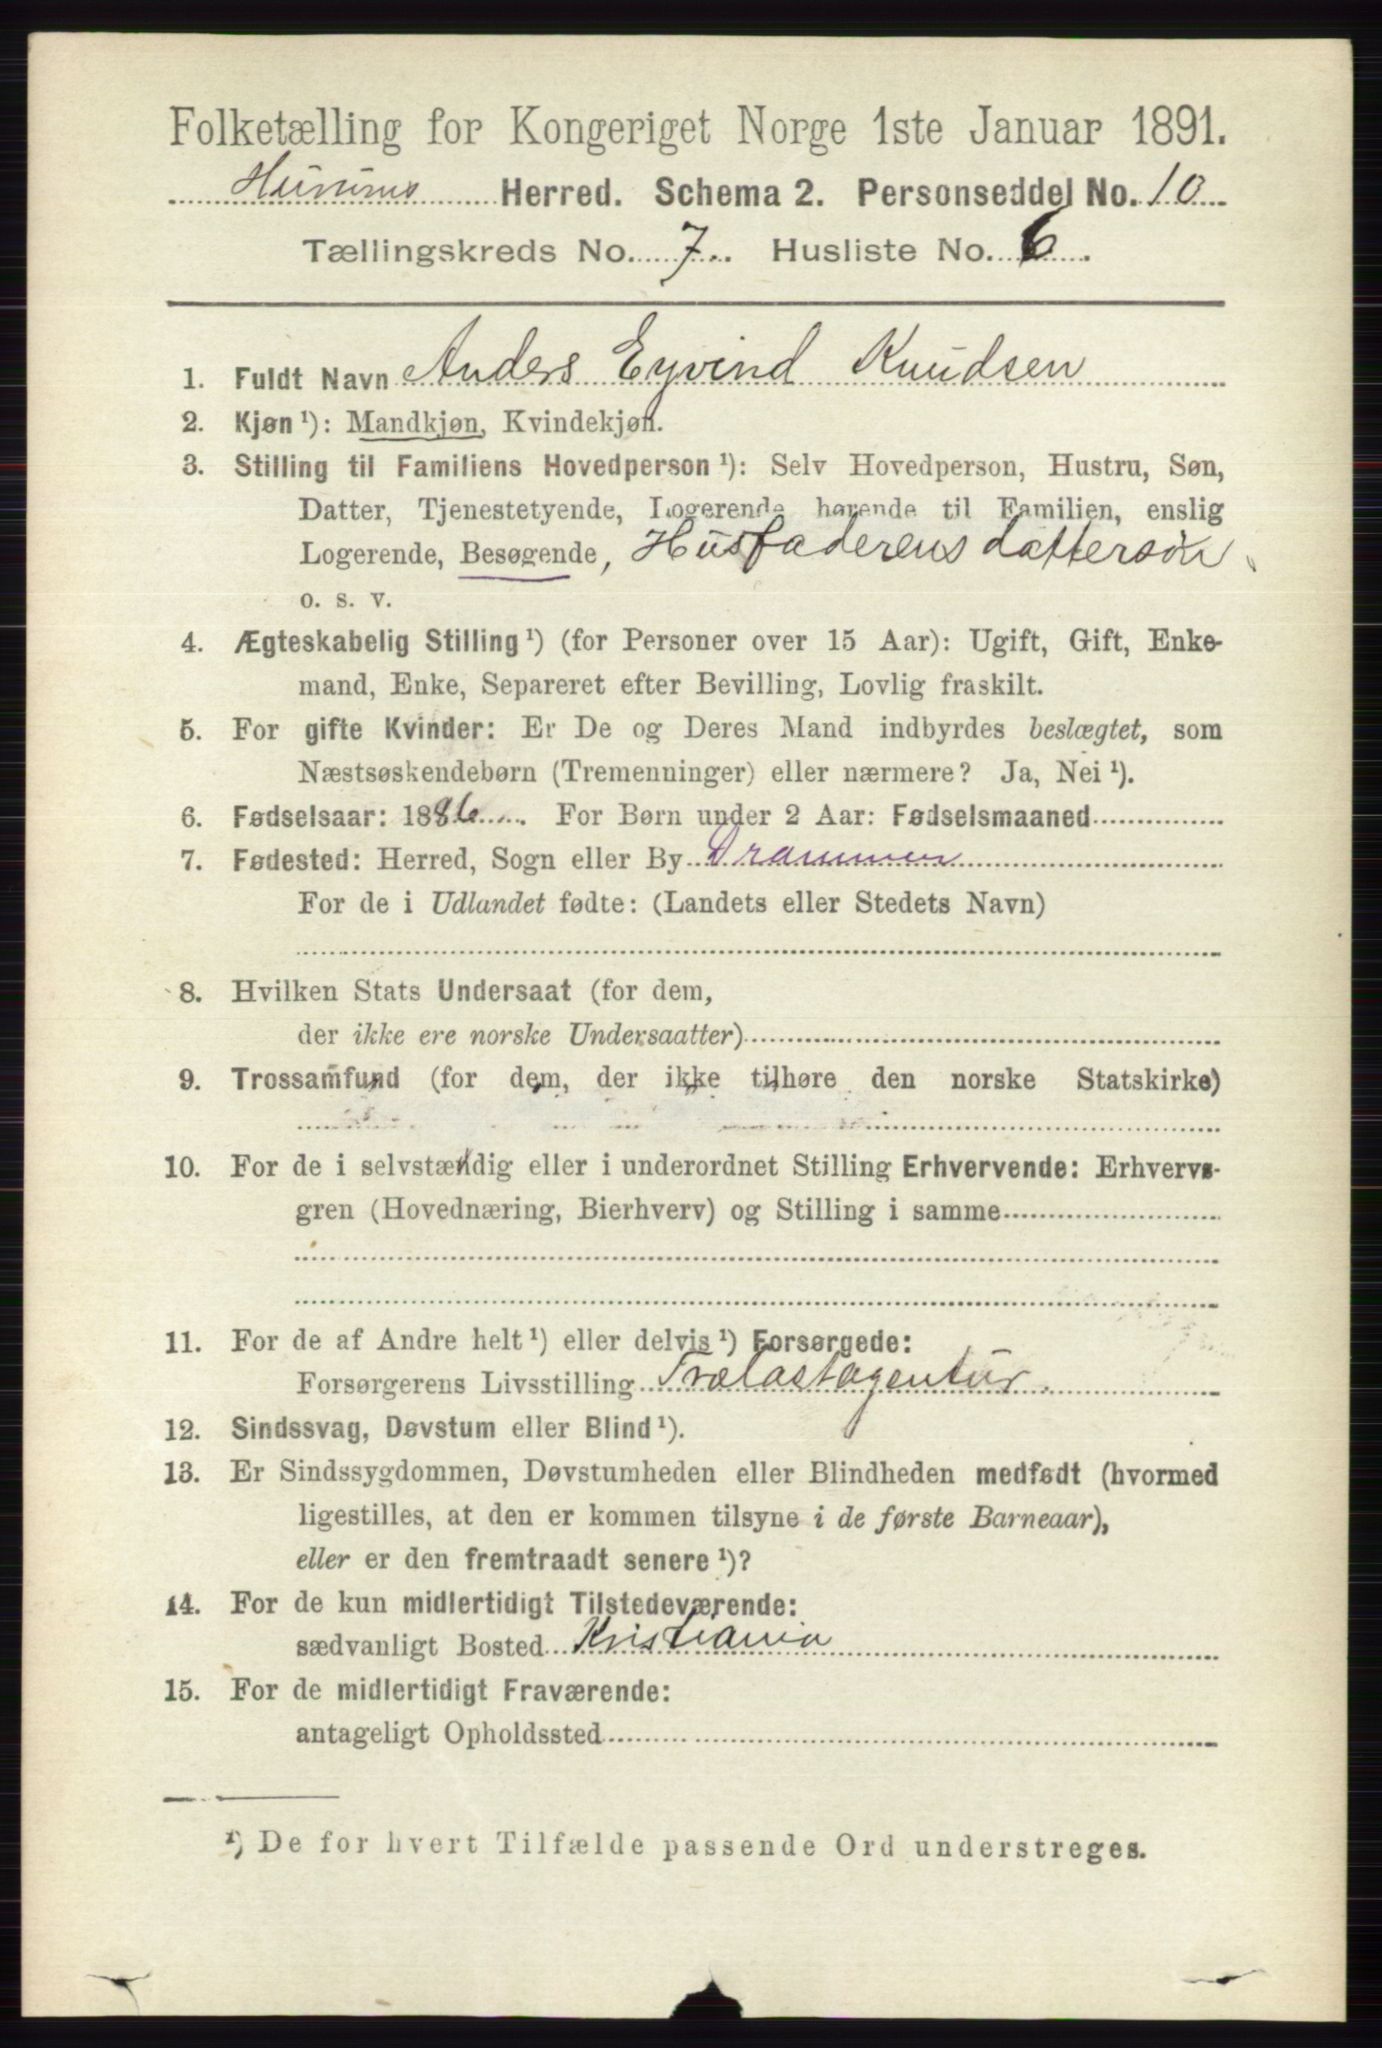 Folketælling for Kongeriget Norge 1ste Januar 1891.
Hurums Herred. Schema 2. Personseddel No. 10
Tællingskreds No. 7. Husliste No. 6.
1. Fuldt Navn Anders Eyvind Knudsen
2. Kjøn ¹): Mandkjøn, Kvindekjøn.
3. Stilling til Familiens Hovedperson ¹): Selv Hovedperson, Hustru, Søn,
Datter, Tjenestetyende, Logerende hørende til Familien, enslig
Logerende, Besøgende, Husfaderens dattersøn
o. s. v.
4. Ægteskabelig Stilling ¹) (for Personer over 15 Aar): Ugift, Gift, Enke-
mand, Enke, Separeret efter Bevilling, Lovlig fraskilt.
5. For gifte Kvinder: Er De og Deres Mand indbyrdes beslægtet, som
Næstsøskendebørn (Tremenninger) eller nærmere? Ja, Nei ¹).
6. Fødselsaar: 1886. For Børn under 2 Aar: Fødselsmaaned
7. Fødested: Herred, Sogn eller By Drammen
For de i Udlandet fødte: (Landets eller Stedets Navn)
8. Hvilken Stats Undersaat (for dem,
der ikke ere norske Undersaatter)
9. Trossamfund (for dem, der ikke tilhøre den norske Statskirke)
10. For de i selvstændig eller i underordnet Stilling Erhvervende: Erhvervs-
gren (Hovednæring, Bierhverv) og Stilling i samme
11. For de af Andre helt ¹) eller delvis ¹) Forsørgede:
Forsørgerens Livsstilling Trælastagentur.
12. Sindssvag, Døvstum eller Blind ¹).
13. Er Sindssygdommen, Døvstumheden eller Blindheden medfødt (hvormed
ligestilles, at den er kommen tilsyne i de første Barneaar),
eller er den fremtraadt senere ¹)?
14. For de kun midlertidigt Tilstedeværende:
sædvanligt Bosted Kristiania
15. For de midlertidigt Fraværende:
antageligt Opholdssted
¹) De for hvert Tilfælde passende Ord understreges.